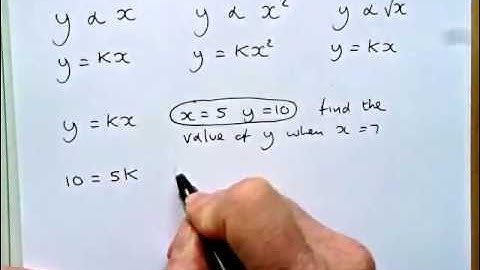 y ∝ x y ∝ x² y ∝ √x
y = Kx y = Kx² y = Kx
y = Kx x = 5 y = 10 find the
value of y when x = 7
10 = 5K